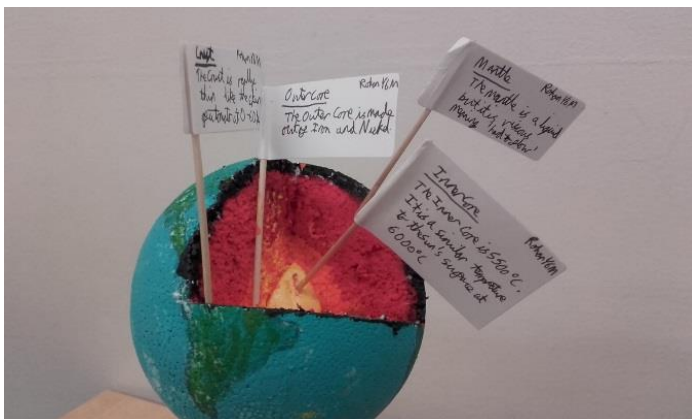 Crust
The Crust is really
thin like the skin
Outer Core
Rohan Y6M
The Outer Core is made
out of Iron and Nickel.
Mantle
Rohan Y6M
The mantle is a liquid
but it is viscous
meaning
Inner Core
Rohan Y6M
The Inner Core is 5500°C.
It is a similar temperature
to the sun's surface at
6000°C